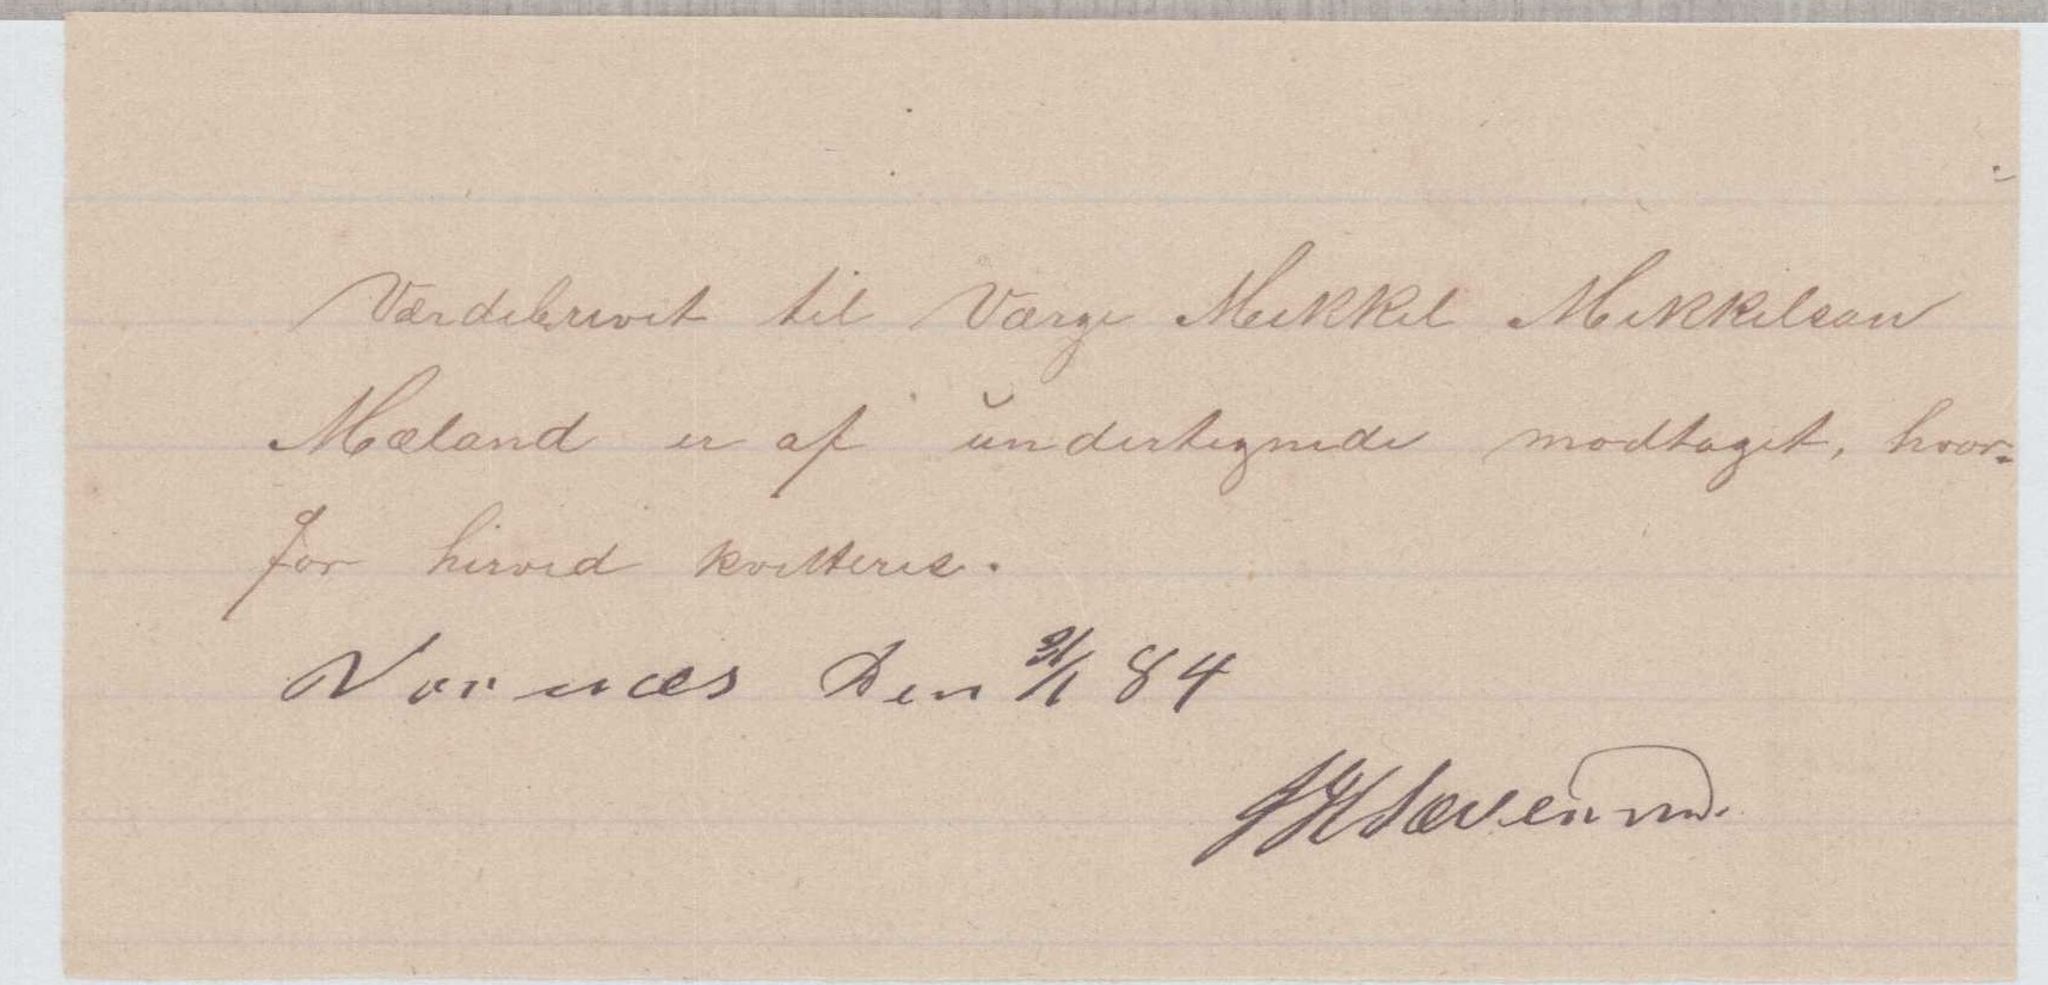 Værdibrevet til Værge Mikkel Mikkelsen
Mæland er af undertegnede modtaget, hvor-
for herved kvitteres.
Vornæs Den 31/1 84